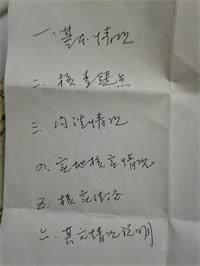 一、基本情况
二、核查疑点
三、约谈情况
四、实地核实情况
五、核实结论
六、其它情况说明